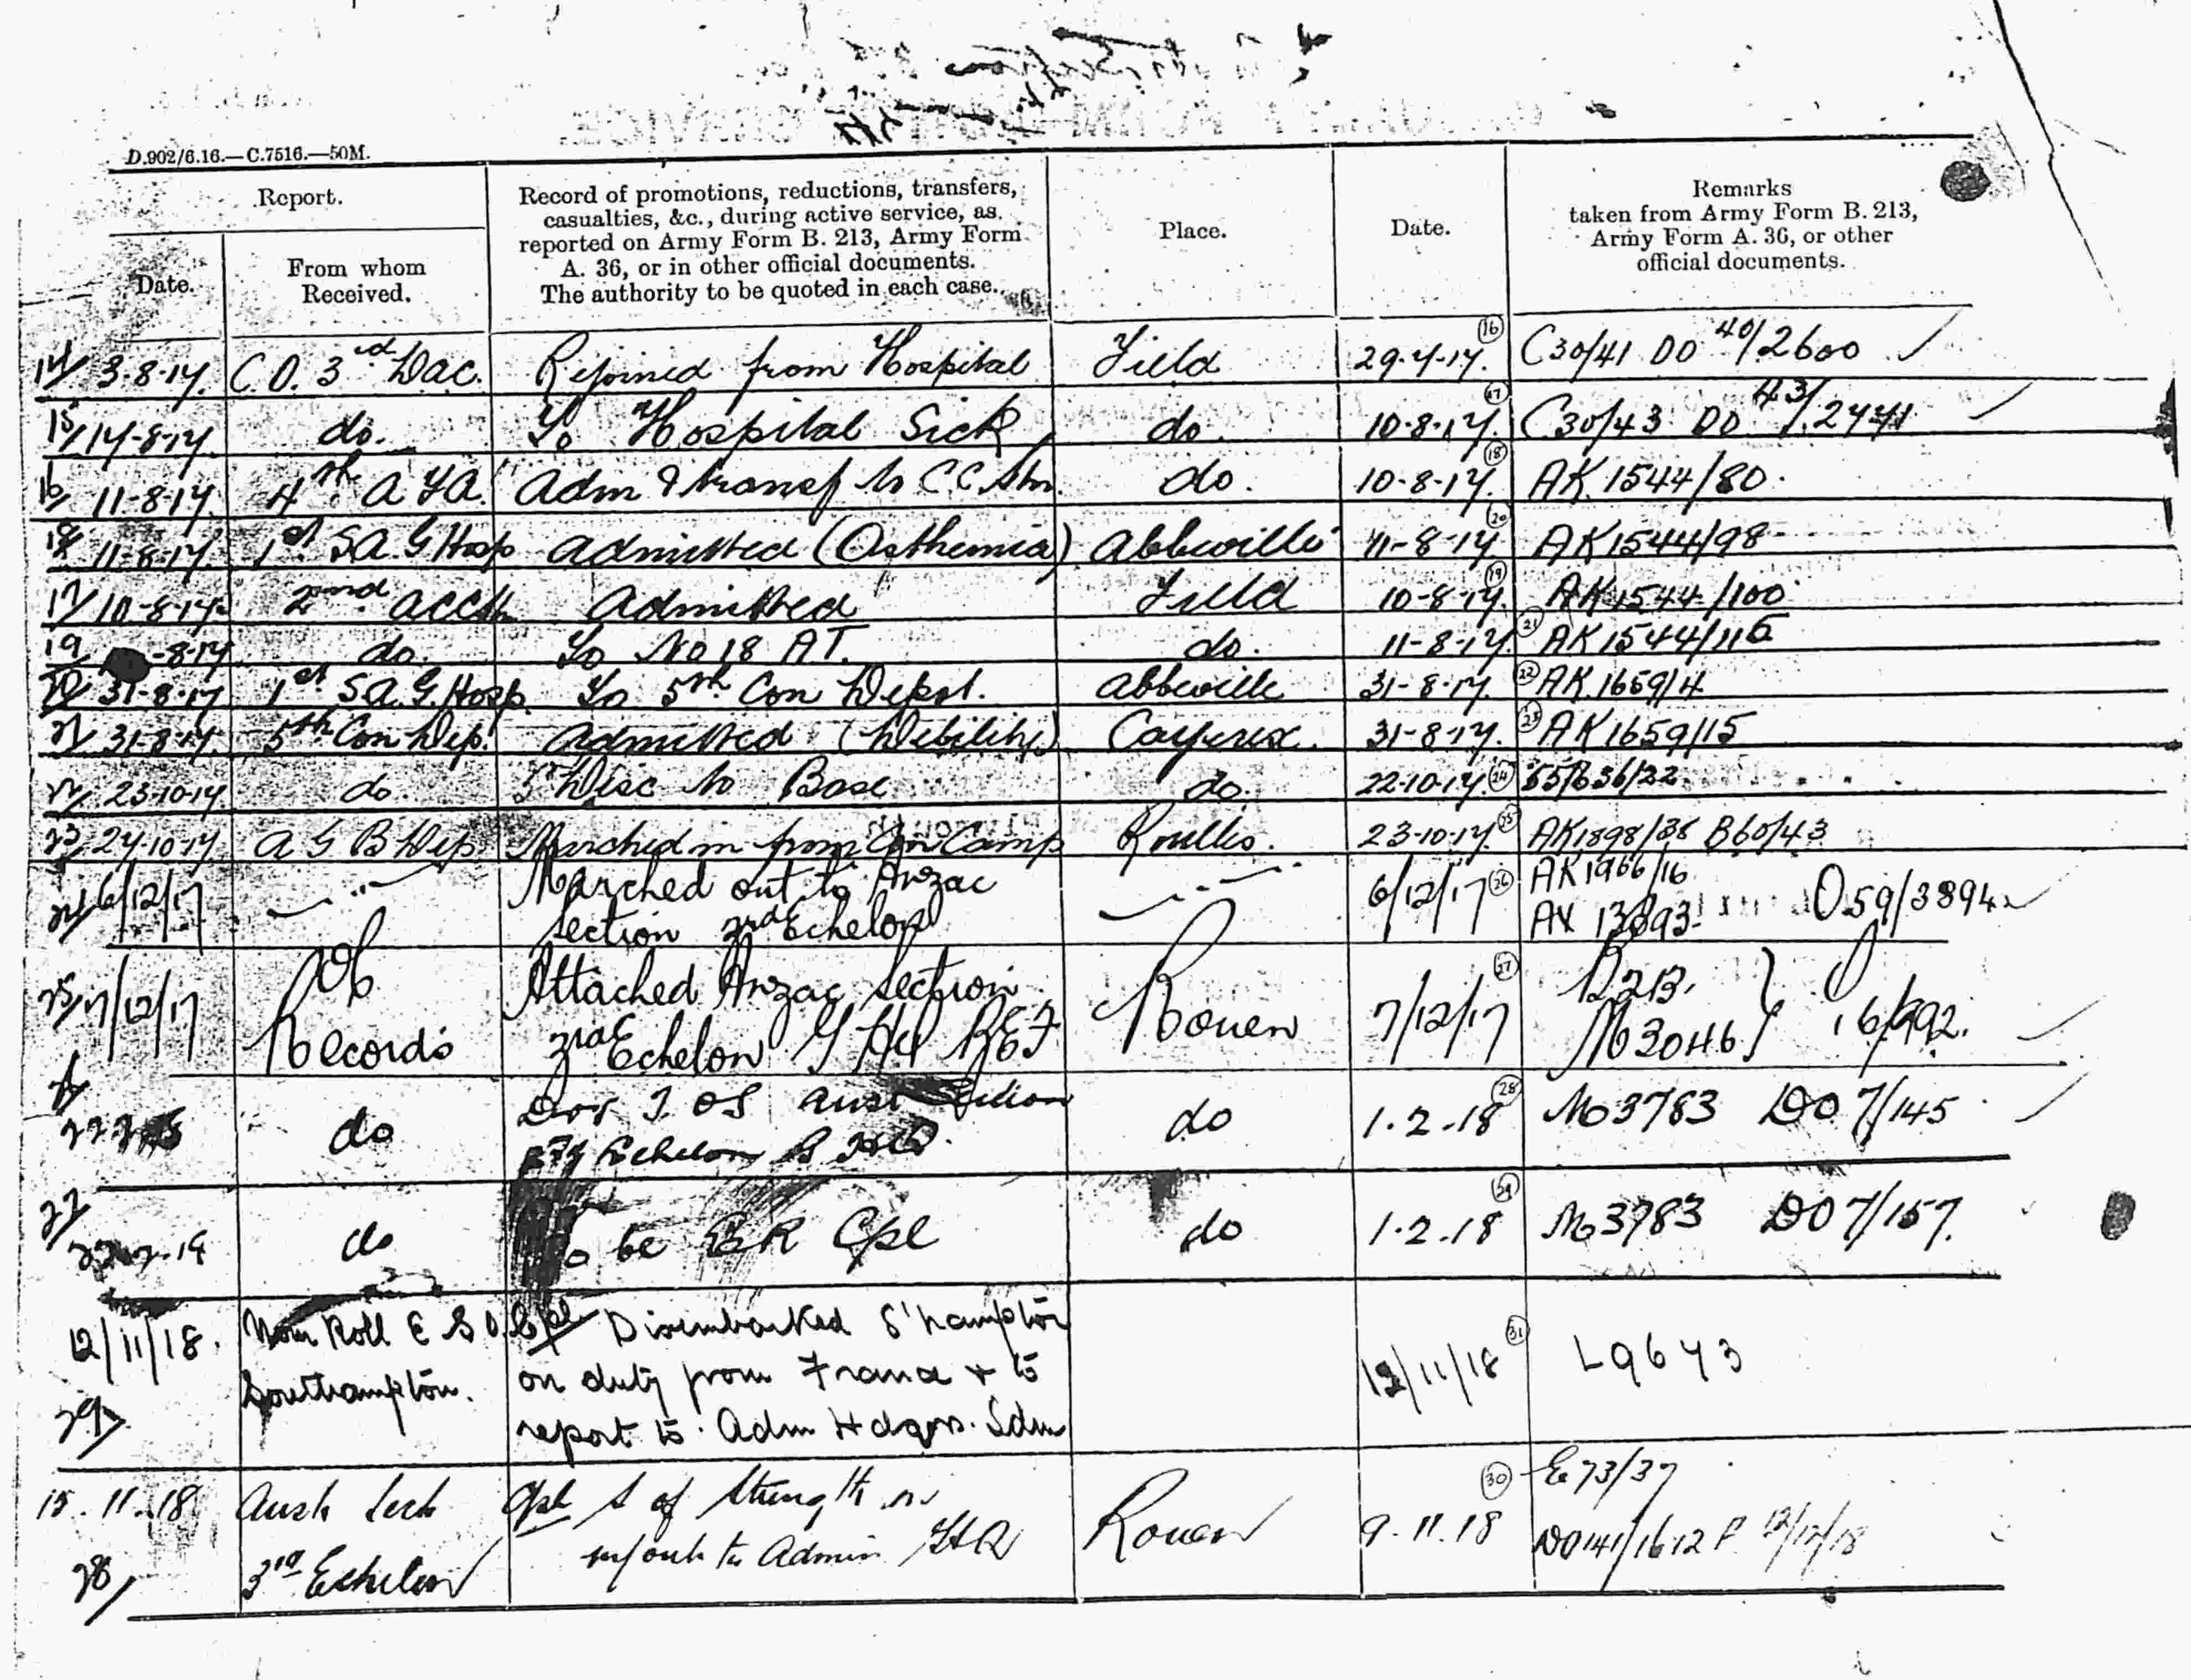 D.902/6.16.—C.7516.—50M.
Report.
Record of promotions, reductions, transfers,
casualties, &c., during active service, as
reported on Army Form B. 213, Army Form
A. 36, or in other official documents.
The authority to be quoted in each case.
Place.
Date.
Remarks
taken from Army Form B. 213,
Army Form A. 36, or other
official documents.
Date.
From whom
Received.
14/ 3-8-17. C.O. 3rd Dac. Rejoined from Hospital Field 29-7-17. (16) C30/41 DO 40/2600
15/ 17-8-17. do. To Hospital Sick do. 10-8-17. (17) C30/43 DO 43/2771
16/ 11-8-17. 4th A F A. Adm & transf to C.C. Stn. do. 10-8-17. (18) AK 1544/80.
18/ 11-8-17. 1st S.A.G Hosp admitted (Asthenia) Abbeville 11-8-17. (20) AK1544/98
17/ 10-8-17. 2nd ACCS admitted Field 10-8-17. (19) AK1544/100
19 -8-17 do. To No 18 A T. do. 11-8-17. (21) AK 1544/116
20/ 31-8-17 1st S.A.G. Hosp. To 5th Con Depot. Abbeville 31-8-17. (22) AK.1659/4
21/ 31-8-17. 5th Con Dep. admitted (Debility) 31-8-17. (23) AK1659/15
22/ 23-10-17 do. Disc to Base do. 22-10-17. (24)
23/ 27-10-17 A G B Dep Marched in from Con Camp Roulles. 23-10-17. (25) AK1898/38 B60/43
24/ 6/12/17 Marched out to Anzac 6/12/17 (26) AK1966/16
section 3rd Echelon AX O59/3894
25/ 7/12/17 Attached Anzac section Rouen 7/12/17 (27)
Records 3rd Echelon G HQ BEF M3046 16/992.
do Aust Section do 1.2.18 (28) M3783 DO 7/145
Echelon G HQ.
27/ do To be ER Cpl do 1.2.18 (29) M3783 DO 7/157.
12/11/18. Nom Roll E S O. Cpl Disembarked S'hampton 12/11/18 (31) L9643
Southampton. on duty from France & to
29/ report to Adm Hdqrs. Ldn
15.11.18 Aust Sect Cpl S of Strength on Rouen 9.11.18 (30) E73/37
28/ 3rd Echelon m/out to Admin HQ DO141/16-12